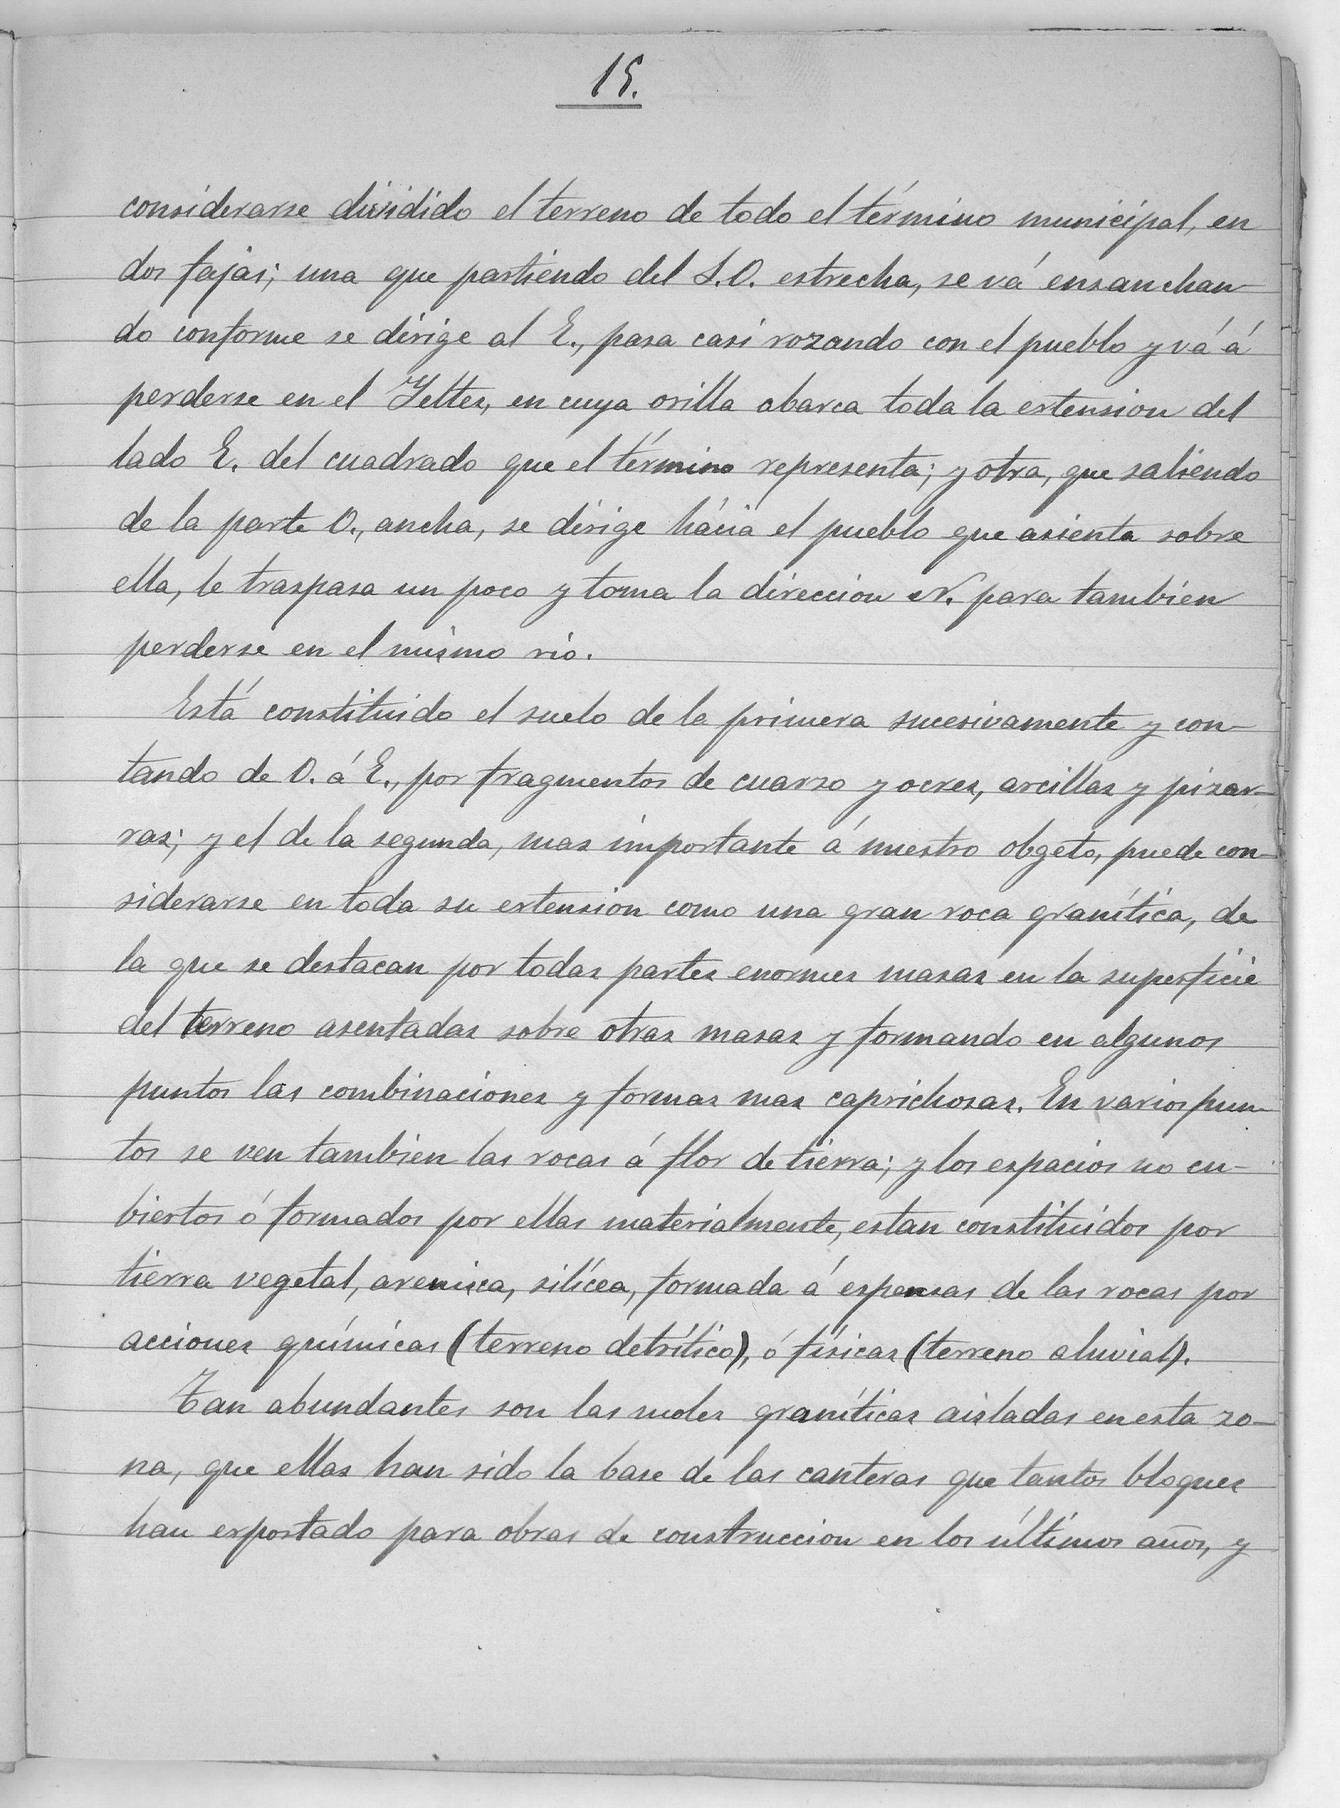 15.
considerarse dividido el terreno de todo el término municipal, en
dos fajas; una que partiendo del S.O. estrecha, se vá ensanchan-
do conforme se dirige al E., pasa casi rozando con el pueblo y vá á
perderse en el Yeltes, en cuya orilla abarca toda la estension del
lado E. del cuadrado que el término representa; y otra, que saliendo
de la parte O., ancha, se dirige hácia el pueblo que asienta sobre
ella, le traspasa un poco y toma la direccion N. para tambien
perderse en el mismo rio.
Está constituido el suelo de la primera sucesivamente y con-
tando de O. á E., por fragmentos de cuarzo y ocres, arcillas y pizar-
ras; y el de la segunda, mas importante á nuestro obgeto, puede con-
siderarse en toda su estension como una gran roca granítica, de
la que se destacan por todas partes enormes masas en la superficie
del terreno asentadas sobre otras masas y formando en algunos
puntos las combinaciones y formas mas caprichosas. En varios pun-
tos se ven tambien las rocas á flor de tierra; y los espacios no cu-
biertos ó formados por ellas materialmente, estan constituidos por
tierra vegetal, arenisca, silícea, formada á espensas de las rocas por
acciones químicas (terreno detrítico), ó físicas (terreno aluvial).
Tan abundantes son las moles graníticas aisladas en esta zo-
na, que ellas han sido la base de las canteras que tantos bloques
han esportado para obras de construccion en los últimos años, y